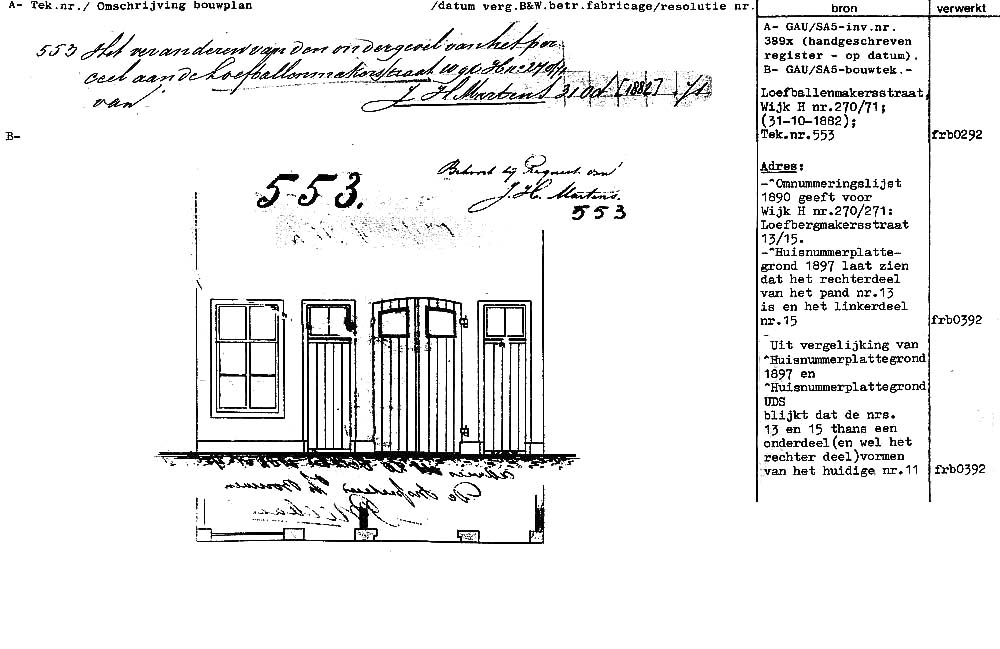 A- Tek.nr./ Omschrijving bouwplan /datum verg.B&W.betr.fabricage/resolutie nr.
553 Het veranderen van den ondergevel van het per-
ceel aan de Loefballenmakersstraat wyk H no 270/71
van J. H. Martens 31 Oct [1882]
B-
553.
Behoort bij Request van
J. H. Martens.
553
De
bron
A- GAU/SA5-inv.nr.
389x (handgeschreven
register - op datum).
B- GAU/SA5-bouwtek.-
Loefballenmakersstraat,
Wijk H nr.270/71;
(31-10-1882);
Tek.nr.553
Adres:
-^Omnummeringslijst
1890 geeft voor
Wijk H nr.270/271:
Loefbergmakersstraat
13/15.
-^Huisnummerplatte-
grond 1897 laat zien
dat het rechterdeel
van het pand nr.13
is en het linkerdeel
nr.15
-
Uit vergelijking van
^Huisnummerplattegrond
1897 en
^Huisnummerplattegrond
UDS
blijkt dat de nrs.
13 en 15 thans een
onderdeel(en wel het
rechter deel)vormen
van het huidige nr.11
verwerkt
frb0292
frb0392
frb0392